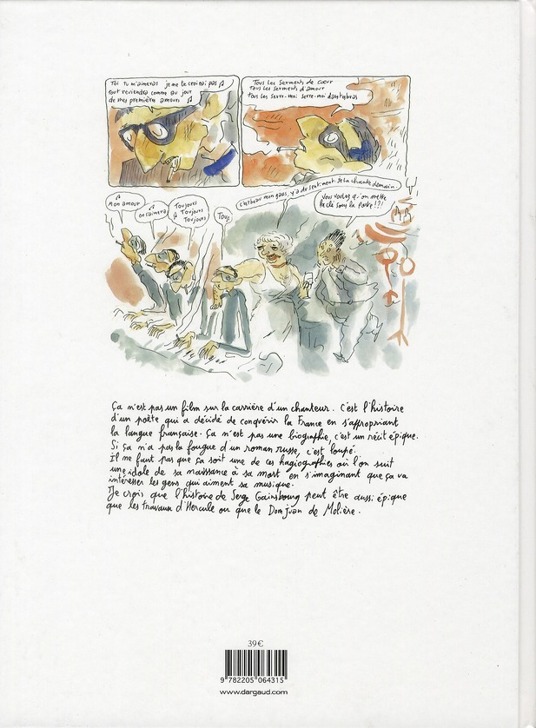 Toi tu m'aimeras je ne te verrai pas
Tous les serments de cœur
Tous les serments d'amour
Tous les serre-moi serre-moi
Mon amour
Toujours
Toujours
Toujours
Tous
Ça n'est pas un film sur la carrière d'un chanteur. C'est l'histoire
d'un poète qui a décidé de conquérir la France en s'appropriant
la langue française. Ça n'est pas une biographie, c'est un récit épique.
Si ça n'a pas la fougue d'un roman russe, c'est loupé.
Il ne faut pas que ça soit une de ces hagiographies où l'on suit
une idole de sa naissance à sa mort en s'imaginant que ça va
intéresser les gens qui aiment sa musique.
Je crois que l'histoire de Serge Gainsbourg peut être aussi épique
que les travaux d'Hercule ou que le Don Juan de Molière.
39 €
9 782205 064315
www.dargaud.com